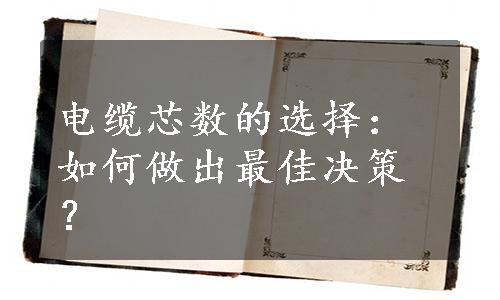 电缆芯数的选择：
如何做出最佳决策
？